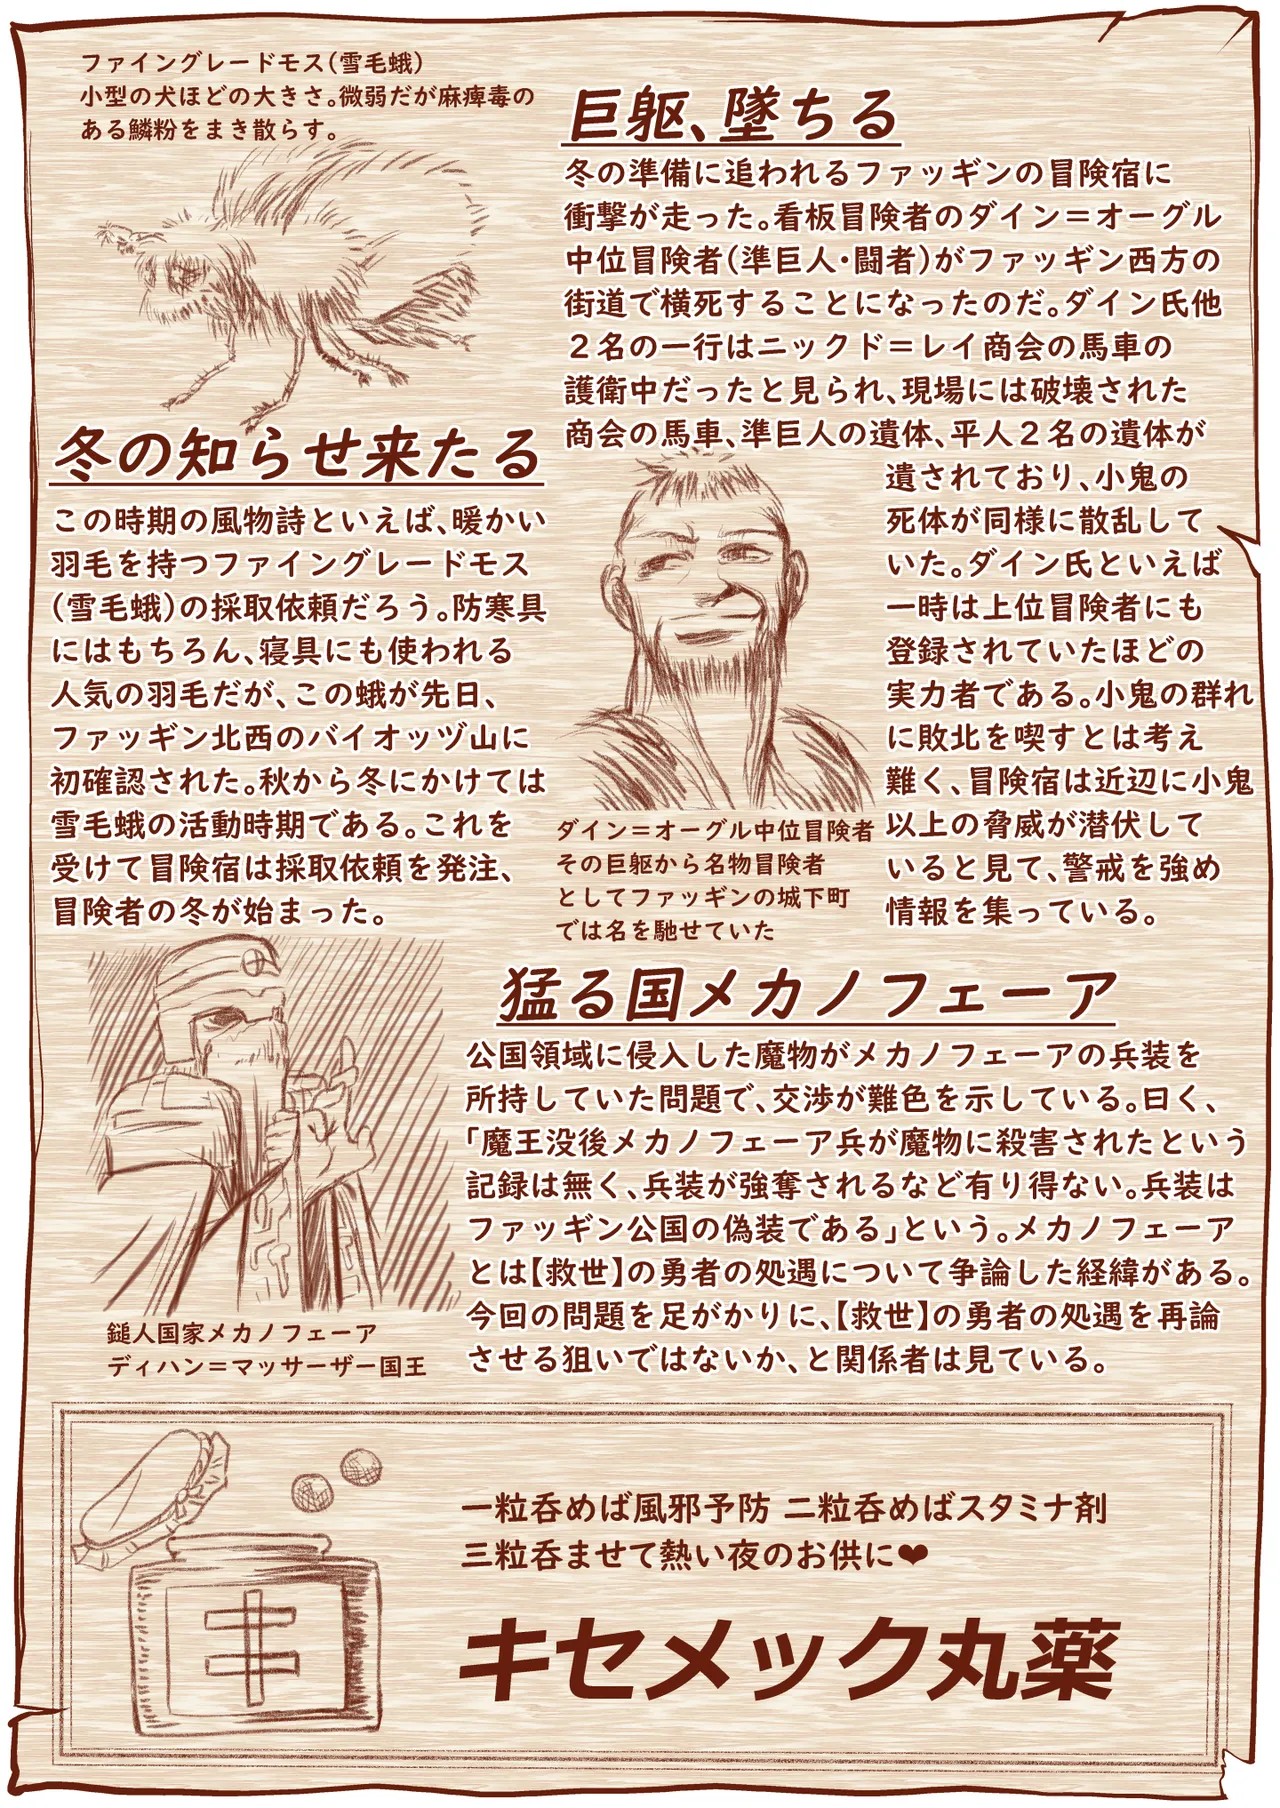 ファイングレードモス(雪毛蛾)
小型の犬ほどの大きさ。微弱だが麻痺毒の
ある鱗粉をまき散らす。
冬の知らせ来たる
この時期の風物詩といえば、暖かい
羽毛を持つファイングレードモス
(雪毛蛾)の採取依頼だろう。防寒具
にはもちろん、寝具にも使われる
人気の羽毛だが、この蛾が先日、
ファッギン北西のバイオッヅ山に
初確認された。秋から冬にかけては
雪毛蛾の活動時期である。これを
受けて冒険宿は採取依頼を発注、
冒険者の冬が始まった。
巨躯、墜ちる
冬の準備に追われるファッギンの冒険宿に
衝撃が走った。看板冒険者のダイン=オーグル
中位冒険者(準巨人・闘者)がファッギン西方の
街道で横死することになったのだ。ダイン氏他
2名の一行はニックド=レイ商会の馬車の
護衛中だったと見られ、現場には破壊された
商会の馬車、準巨人の遺体、平人2名の遺体が
遺されており、小鬼の
死体が同様に散乱して
いた。ダイン氏といえば
一時は上位冒険者にも
登録されていたほどの
実力者である。小鬼の群れ
に敗北を喫すとは考え
難く、冒険宿は近辺に小鬼
以上の脅威が潜伏して
いると見て、警戒を強め
情報を集っている。
ダイン=オーグル中位冒険者
その巨躯から名物冒険者
としてファッギンの城下町
では名を馳せていた
猛る国メカノフェーア
公国領域に侵入した魔物がメカノフェーアの兵装を
所持していた問題で、交渉が難色を示している。曰く、
「魔王没後メカノフェーア兵が魔物に殺害されたという
記録は無く、兵装が強奪されるなど有り得ない。兵装は
ファッギン公国の偽装である」という。メカノフェーア
とは【救世】の勇者の処遇について争論した経緯がある。
今回の問題を足がかりに、【救世】の勇者の処遇を再論
させる狙いではないか、と関係者は見ている。
鎚人国家メカノフェーア
ディハン=マッサーザー国王
一粒呑めば風邪予防 二粒呑めばスタミナ剤
三粒呑ませて熱い夜のお供に❤
キセメック丸薬
キ